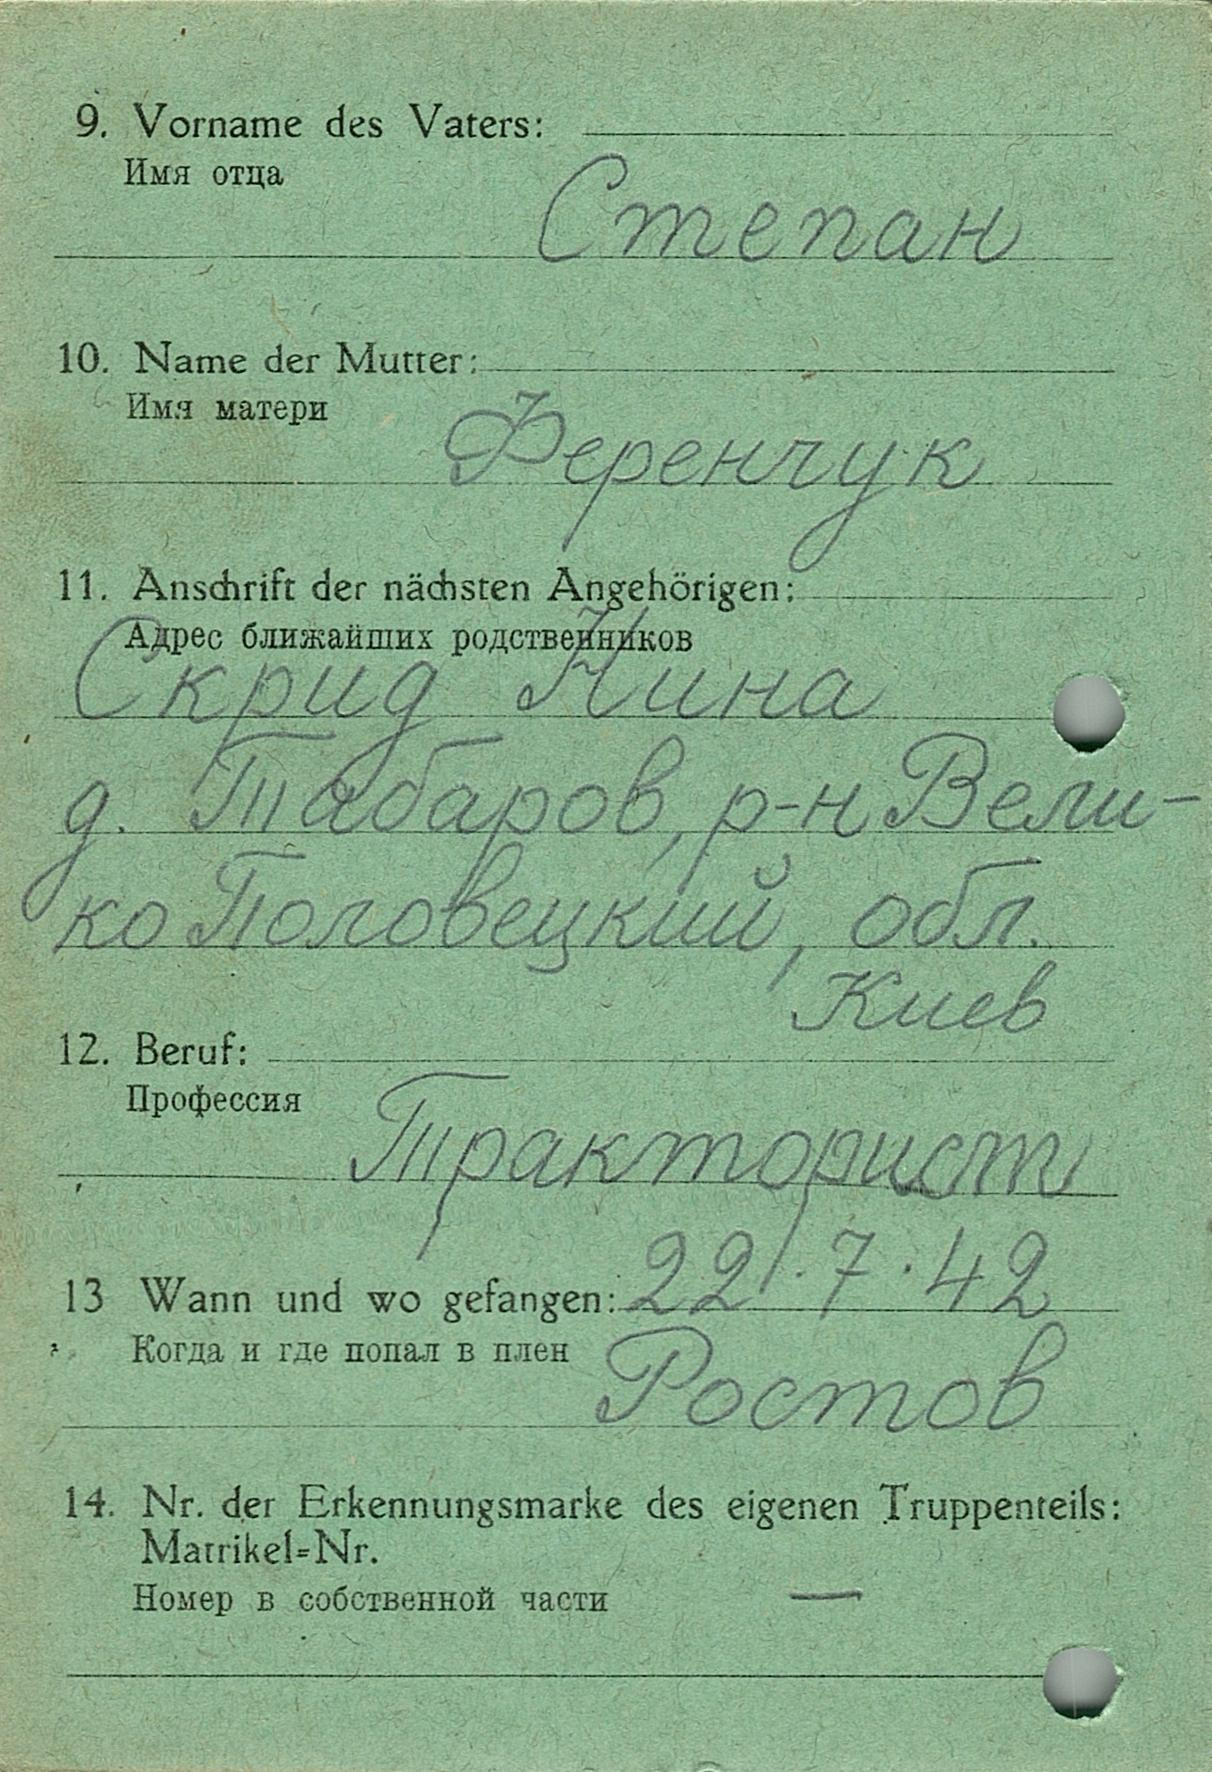 9. Vorname des Vaters:
Имя отца
Степан
10. Name der Mutter:
Имя матери
Ференчук
11. Anschrift der nächsten Angehörigen:
Адрес ближайших родственников
Скрид Нина
д. Табаров, р-н Вели-
ко Половецкий, обл.
Киев
12. Beruf:
Профессия
Тракторист
13 Wann und wo gefangen: 22.7.42
Когда и где попал в плен
Ростов
14. Nr. der Erkennungsmarke des eigenen Truppenteils:
Matrikel=Nr.
Номер в собственной части —